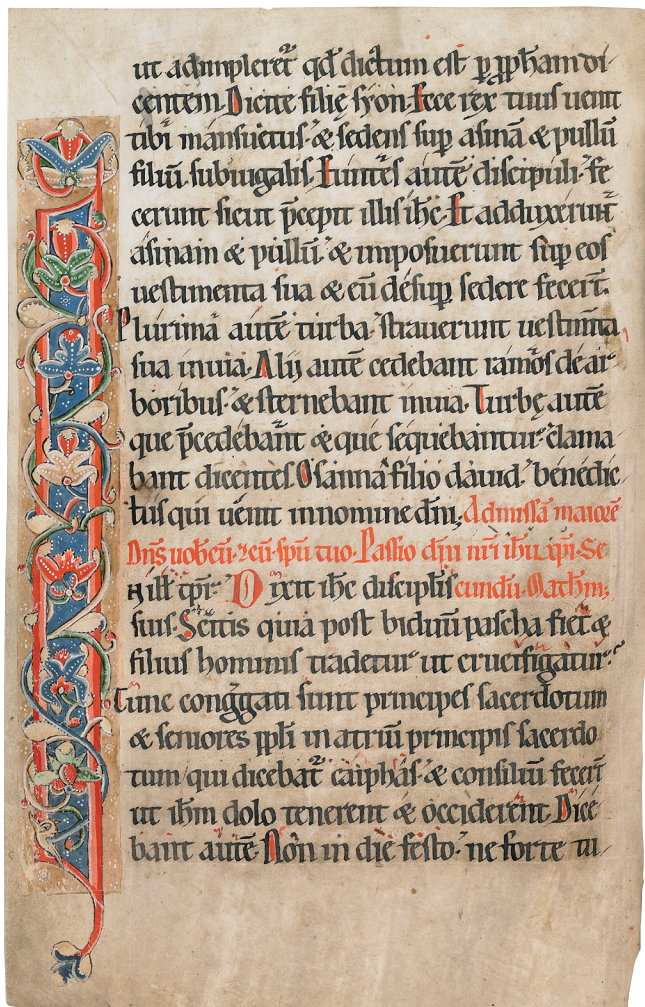 ut adimpleret̄ qd̄ dictum est p̱ ꝓpħam di
centem. Dicite filię syon. Ecce rex tuus uenit
tibi mansuetus. & sedens sup̱ asinā & pullū
filiū subiugalis. Euntes autē discipuli. fe
cerunt sicut p̄cepit illis ihc̄. Et adduxerunt
asinam & pullū. & imposuerunt sup̱ eos
uestimenta sua & eū desup̱ sedere fecer̄t.
Plurima autē turba. strauerunt uestim̄ta
sua inuia. Alij autē cedebant ramos de ar
boribus. & sternebant inuia. Turbę autē
que p̄cedebant & que sequebantur. clama
bant dicentes. Osanna filio dauid. benedic
tus qui uenit innomine dn̄i; Ad missā maiorē
Dn̄s uobcū. & cū sp̄u tuo. Passio dn̄i nr̄i ihu xp̄i. Se
N ill tp̄r. Dixit ihc̄ discipl̄is cundū. Mathm;
suis. Scitis quia post biduū pascha fiet &
filius hominis tradetur ut crucifigatur.
Tunc conḡgati sunt principes sacerdotum
& seniores ppl̄i in atriū principis sacerdo
tum qui dicebat̄ caiphas. & consiliū fecer̄t
ut ihm̄ dolo tenerent & occiderent. Dice
bant autē. Non in die festo. ne forte tu